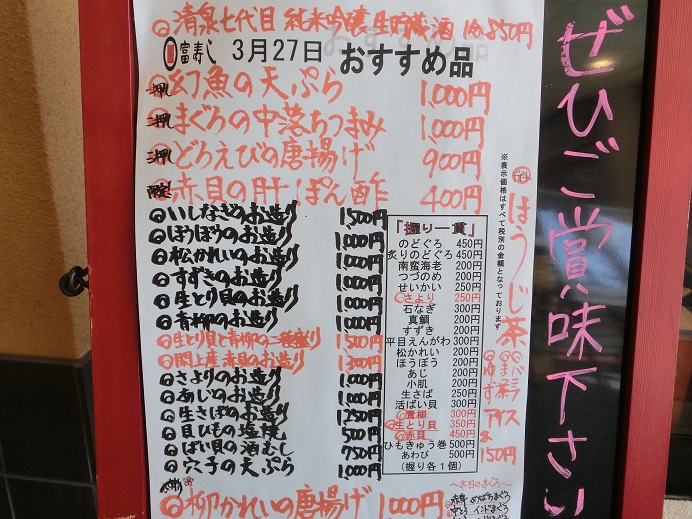 清泉七代目 純米吟醸生貯蔵酒 1合850円
富寿し 3月27日 おすすめ品
一押 幻魚の天ぷら 1,000円
二押 まぐろの中落ちつまみ 1,000円
三押 どろえびの唐揚げ 900円
赤貝の肝ぽん酢 400円
いしなぎのお造り 1,500円
ほうぼうのお造り 1,000円
松かれいのお造り 1,000円
すずきのお造り 1,000円
生とり貝のお造り 1,000円
青柳のお造り 1,000円
生とり貝と青柳の二種盛り 1,500円
閖上産赤貝のお造り 1,300円
さよりのお造り 1,000円
あじのお造り 1,000円
生さばのお造り 1,250円
貝ひもの塩焼 500円
ばい貝の酒むし 750円
穴子の天ぷら 1,000円
柳かれいの唐揚げ 1,000円
「握り一貫」
のどぐろ 450円
炙りのどぐろ 450円
南蛮海老 200円
つづのめ 200円
せいかい 250円
さより 250円
石なぎ 300円
真鯛 200円
すずき 200円
平目えんがわ 300円
松かれい 200円
ほうぼう 200円
あじ 200円
小肌 200円
生さば 250円
活ばい貝 300円
青柳 300円
生とり貝 350円
赤貝 450円
ひもきゅう巻 500円
あわび 500円
(握り各1個)
※表示価格はすべて税別の金額となっております
ほうじ茶
バニラ
抹茶
ゆず
アイス
各150円
～本日のまぐろ～
ぜひご賞味下さい